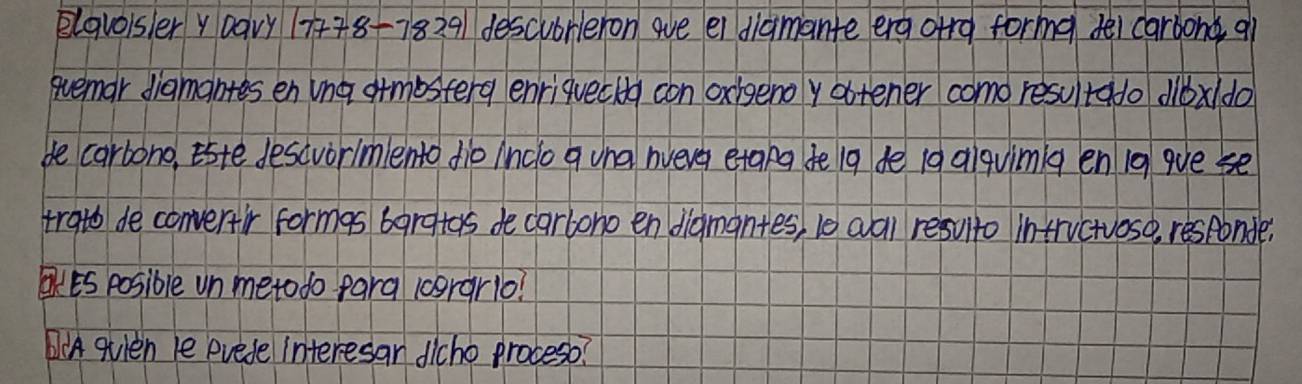 Lavoisier y Davy (1778-1829) descubrieron que el diamante era otra forma del carbono, al
quemar diamantes en una atmósfera enriquecida con oxígeno y obtener como resultado dióxido
de carbono, Este descubrimiento dio inicio a una nueva etapa de la de la alquimia en la que se
trató de convertir formas baratas de carbono en diamantes, lo cual resultó infructuoso, responde:
a) ¿Es posible un metodo para lograrlo?
b) ¿A quién le puede interesar dicho proceso?